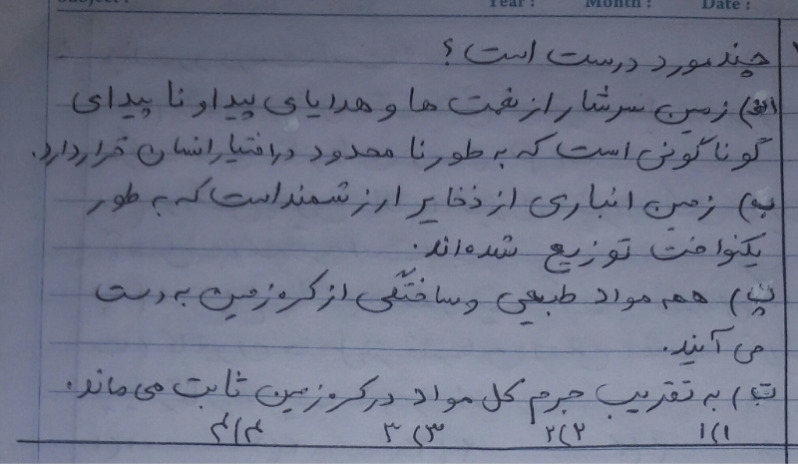 Year : Month : Date :
چند مورد درست است؟
الف) زمین سرشار از نعمت ها و هدایای پیدا و نا پیدای
گوناگونی است که به طور نا محدود در اختیار انسان قرار دارد.
ب) زمین انباری از ذخایر ارزشمند است که به طور
یکنواخت توزیع شده اند.
پ) همه مواد طبیعی و ساختگی از کره زمین به دست
می آیند.
ت) به تقریب جرم کل مواد در کره زمین ثابت می ماند.
۱) ۱ ۲) ۲ ۳) ۳ ۴) ۴